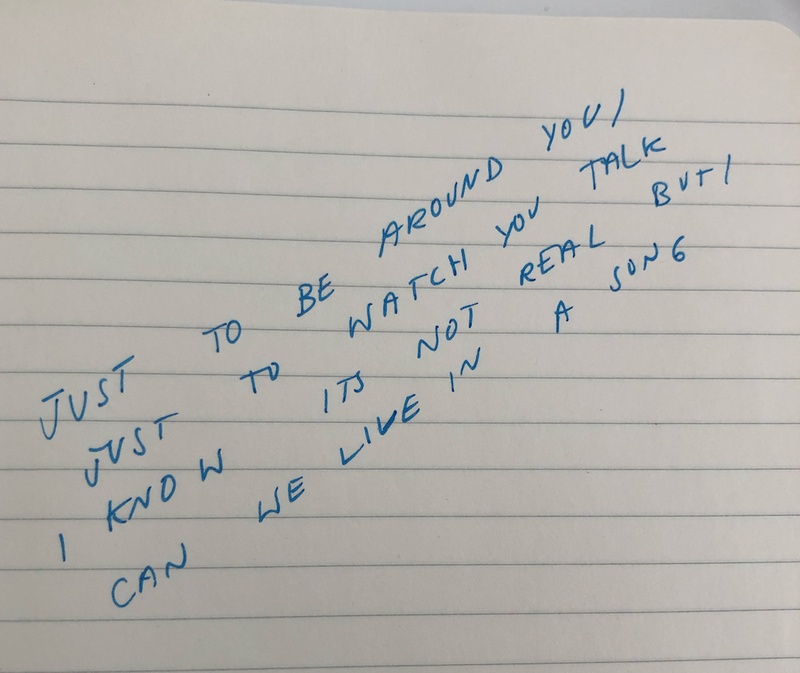 JUST TO BE AROUND YOU/
JUST TO WATCH YOU TALK
I KNOW ITS NOT REAL BUT/
CAN WE LIVE IN A SONG